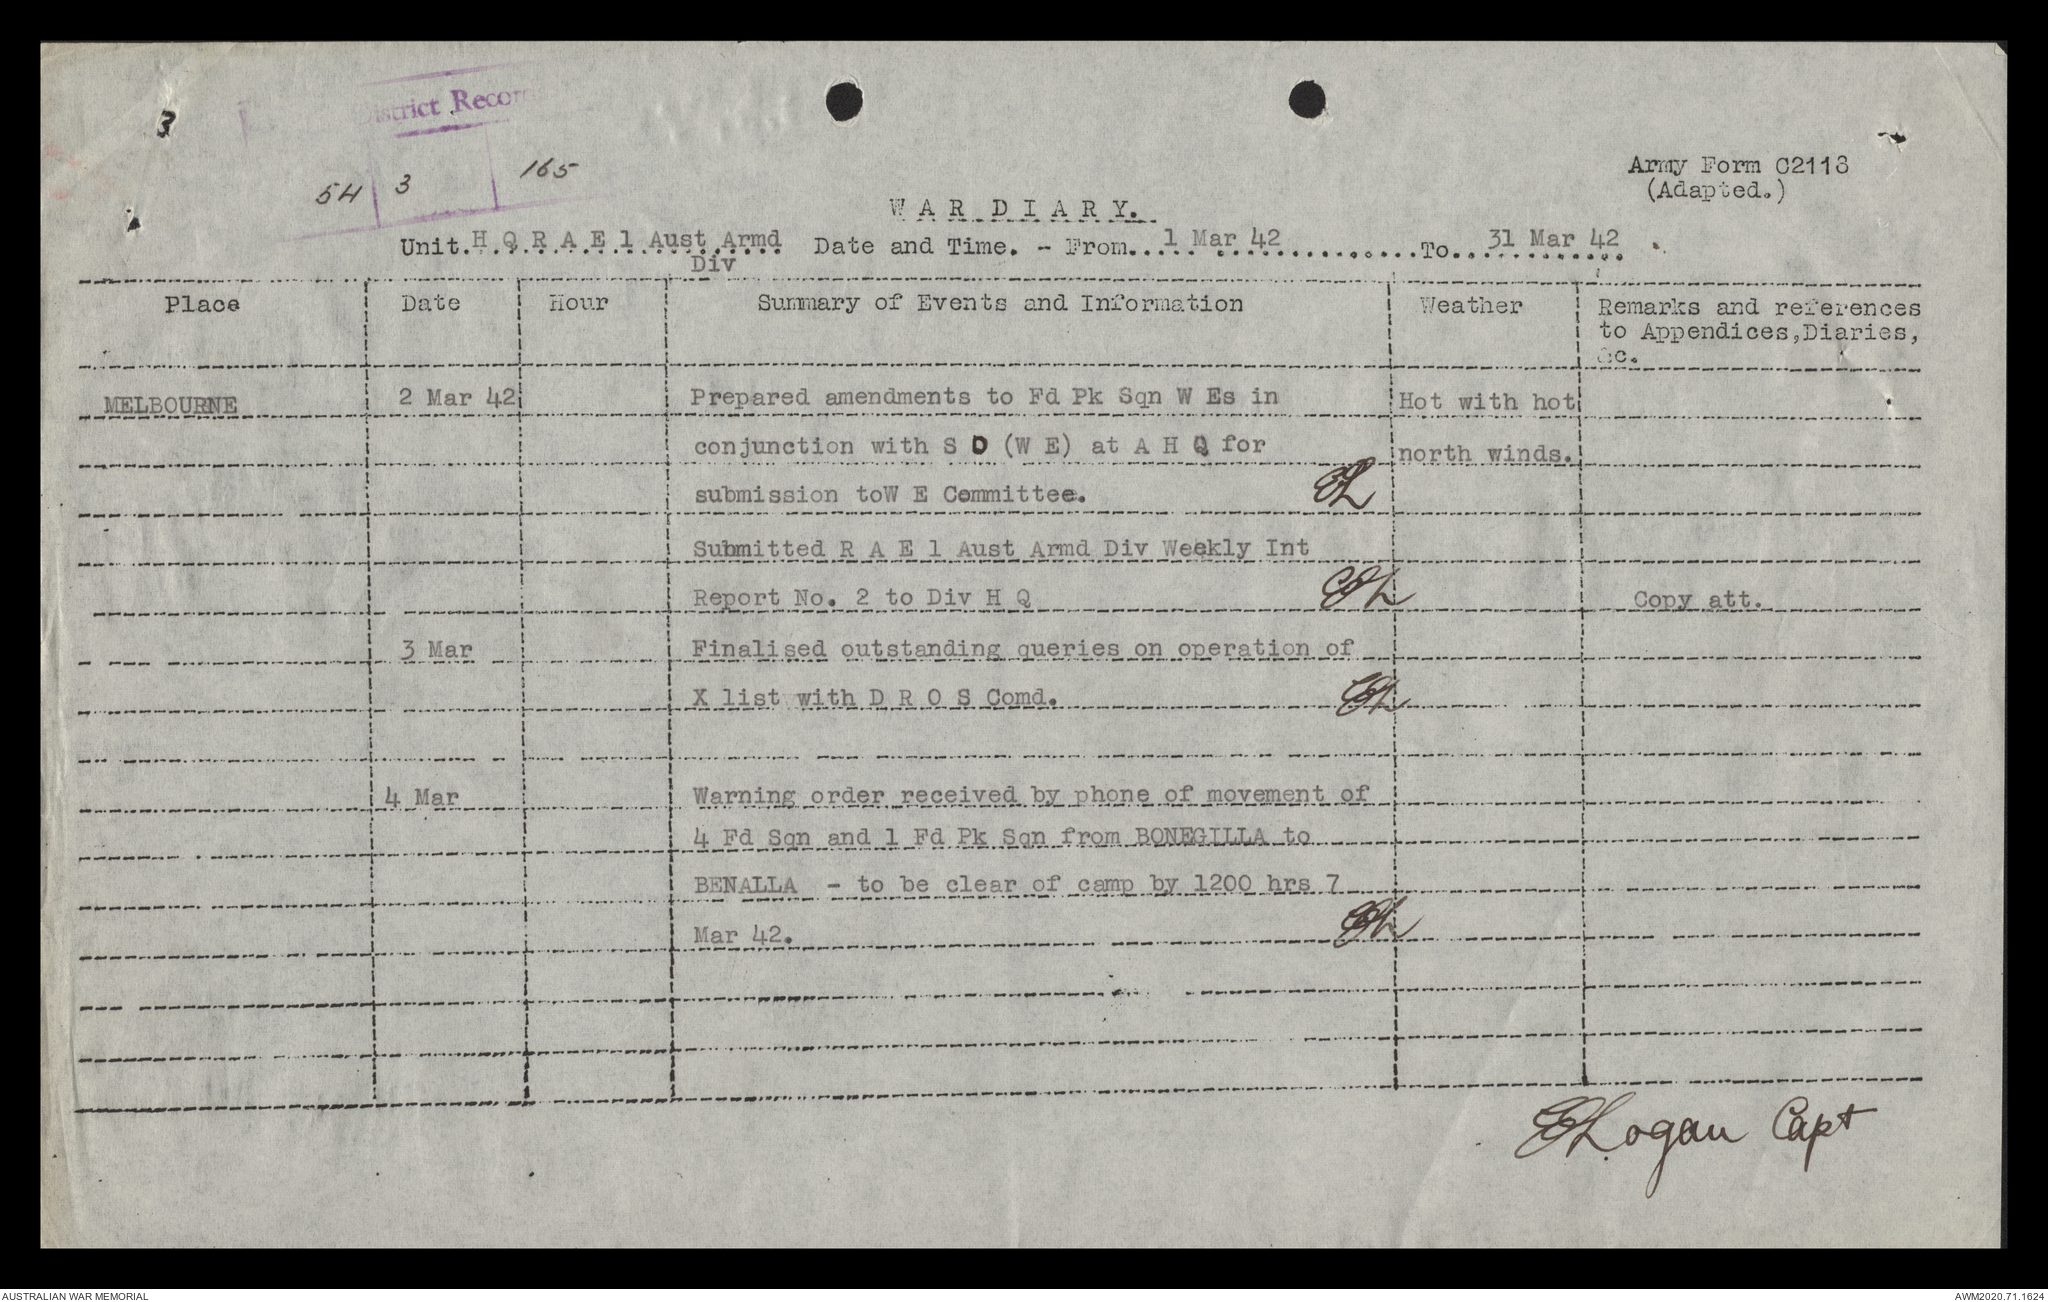 3
District Recor
54 3 165
Army Form C2118
(Adapted.)
WAR DIARY.
Unit. H Q R A E 1 Aust Armd Date and Time. - From..... 1 Mar 42 ..............To. 31 Mar 42
Div
Place Date Hour Summary of Events and Information Weather Remarks and references
to Appendices,Diaries,
&c.
MELBOURNE 2 Mar 42 Prepared amendments to Fd Pk Sqn W Es in Hot with hot
conjunction with S D (W E) at A H Q for north winds.
submission toW E Committee. EL
Submitted R A E 1 Aust Armd Div Weekly Int
Report No. 2 to Div H Q Copy att.
3 Mar Finalised outstanding queries on operation of
X list with D R O S Comd.
4 Mar Warning order received by phone of movement of
4 Fd Sqn and 1 Fd Pk Sqn from BONEGILLA to
BENALLA - to be clear of camp by 1200 hrs 7
Mar 42.
Logan Capt
AUSTRALIAN WAR MEMORIAL AWM2020.71.1624